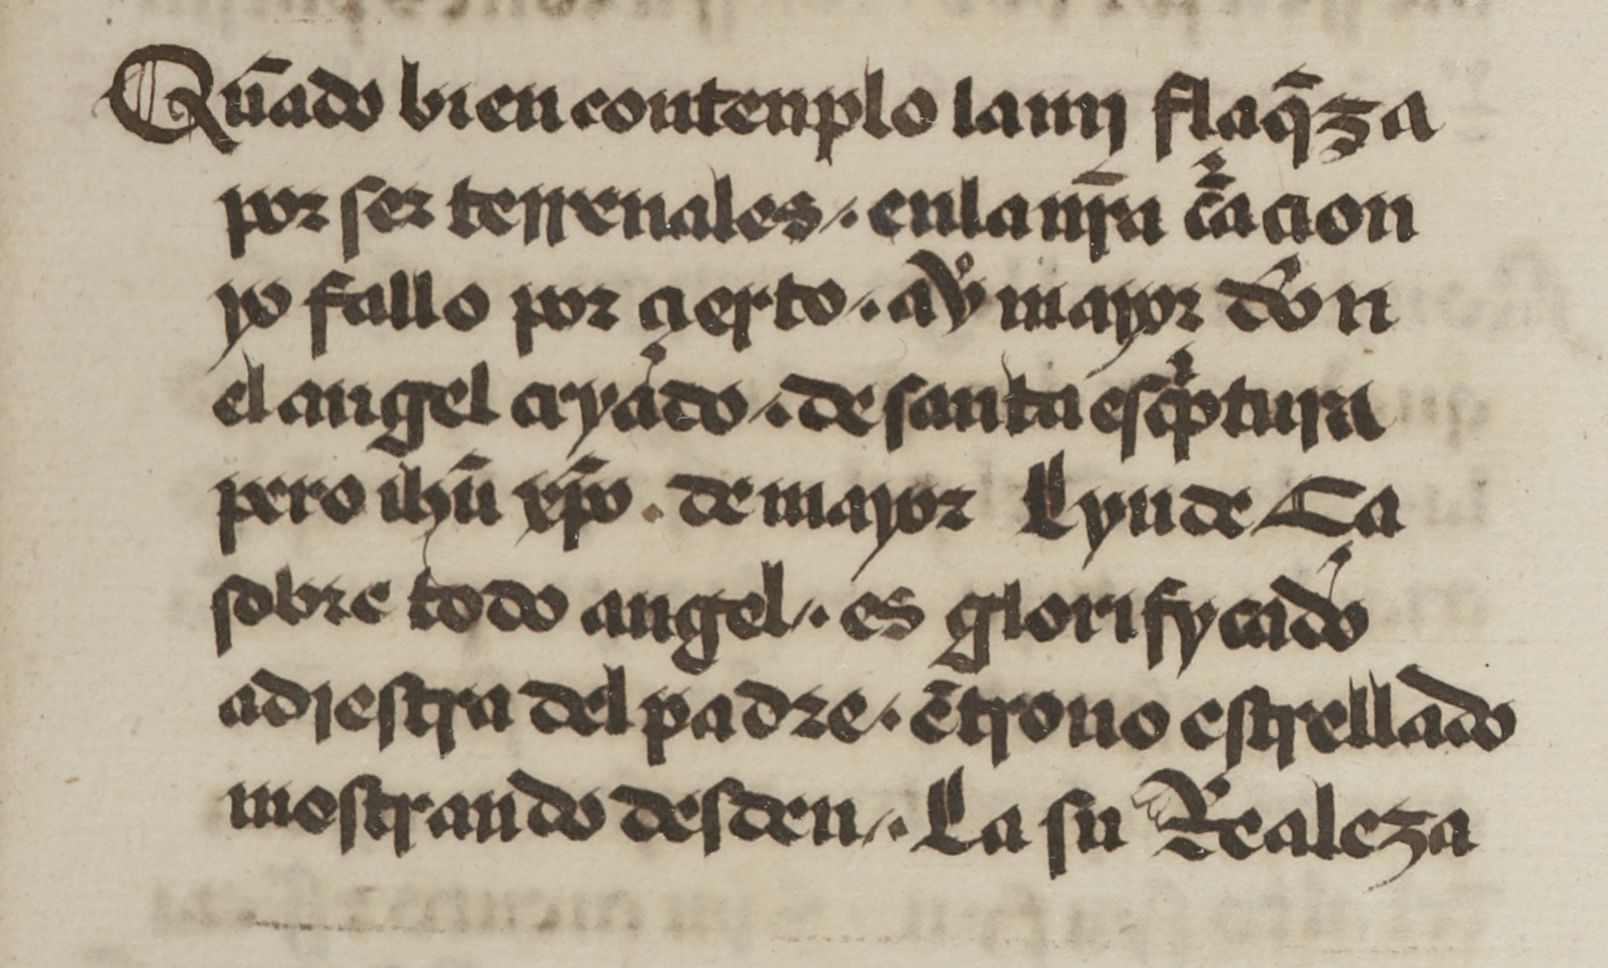 Qũado bien contenplo la mj flaq̃za
por ser terrenales · en la nr̃a c̃acion
yo fallo por cierto · av̾ mayor don
el angel cryado · de santa esc̾ptura
pero ihũ xp̃o · de mayor Lyndeza
sobre todo angel · es glorifycado
a diestra del padre · ẽ trono estrellado
mostrando desden · La su Realeza